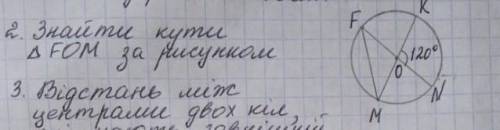 2. Знайти кути
△FOM за рисунком
3. Відстань між
центрами двох кіл,
F
K
120°
O
N
M